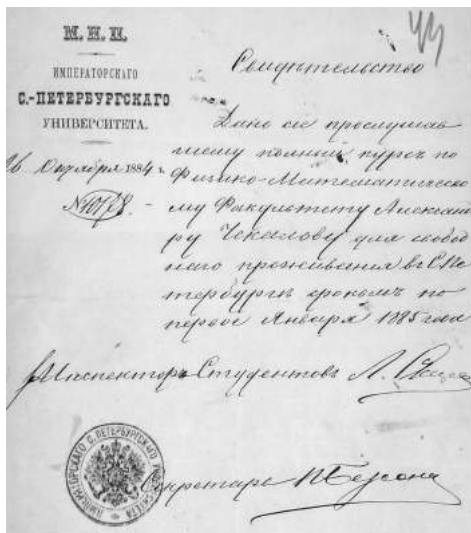 М. Н. П.
ИМПЕРАТОРСКАГО
С.-ПЕТЕРБУРГСКАГО
УНИВЕРСИТЕТА.
26 Октября 1884 г.
№10178.
Свидѣтельство
Дано сіе прослушав
шему полный курсъ по
Физико-Математическо
му Факультету Александ
ру Чекалову для свобод
наго проживанія въ С.Пе
тербургѣ срокомъ по
первое Января 1885 года
Инспекторъ Студентовъ Л.
Секретарь
ИМПЕРАТОРСКАГО С. ПЕТЕРБУРГСКАГО УНИВЕРСИТЕТА